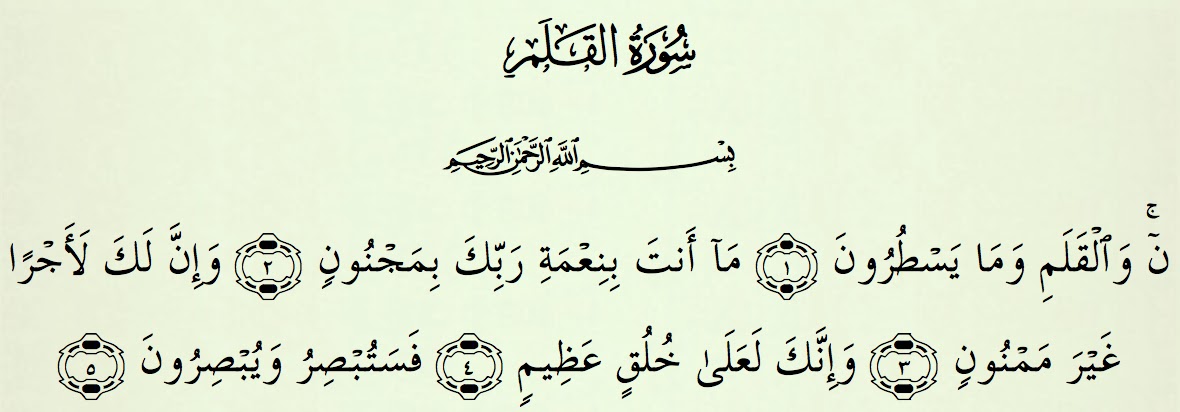 سُورَةُ القَلَمِ
بِسْمِ ٱللَّهِ ٱلرَّحْمَٰنِ ٱلرَّحِيمِ
نٓ ۚ وَٱلْقَلَمِ وَمَا يَسْطُرُونَ ١ مَآ أَنتَ بِنِعْمَةِ رَبِّكَ بِمَجْنُونٍ ٢ وَإِنَّ لَكَ لَأَجْرًا
غَيْرَ مَمْنُونٍ ٣ وَإِنَّكَ لَعَلَىٰ خُلُقٍ عَظِيمٍ ٤ فَسَتُبْصِرُ وَيُبْصِرُونَ ٥